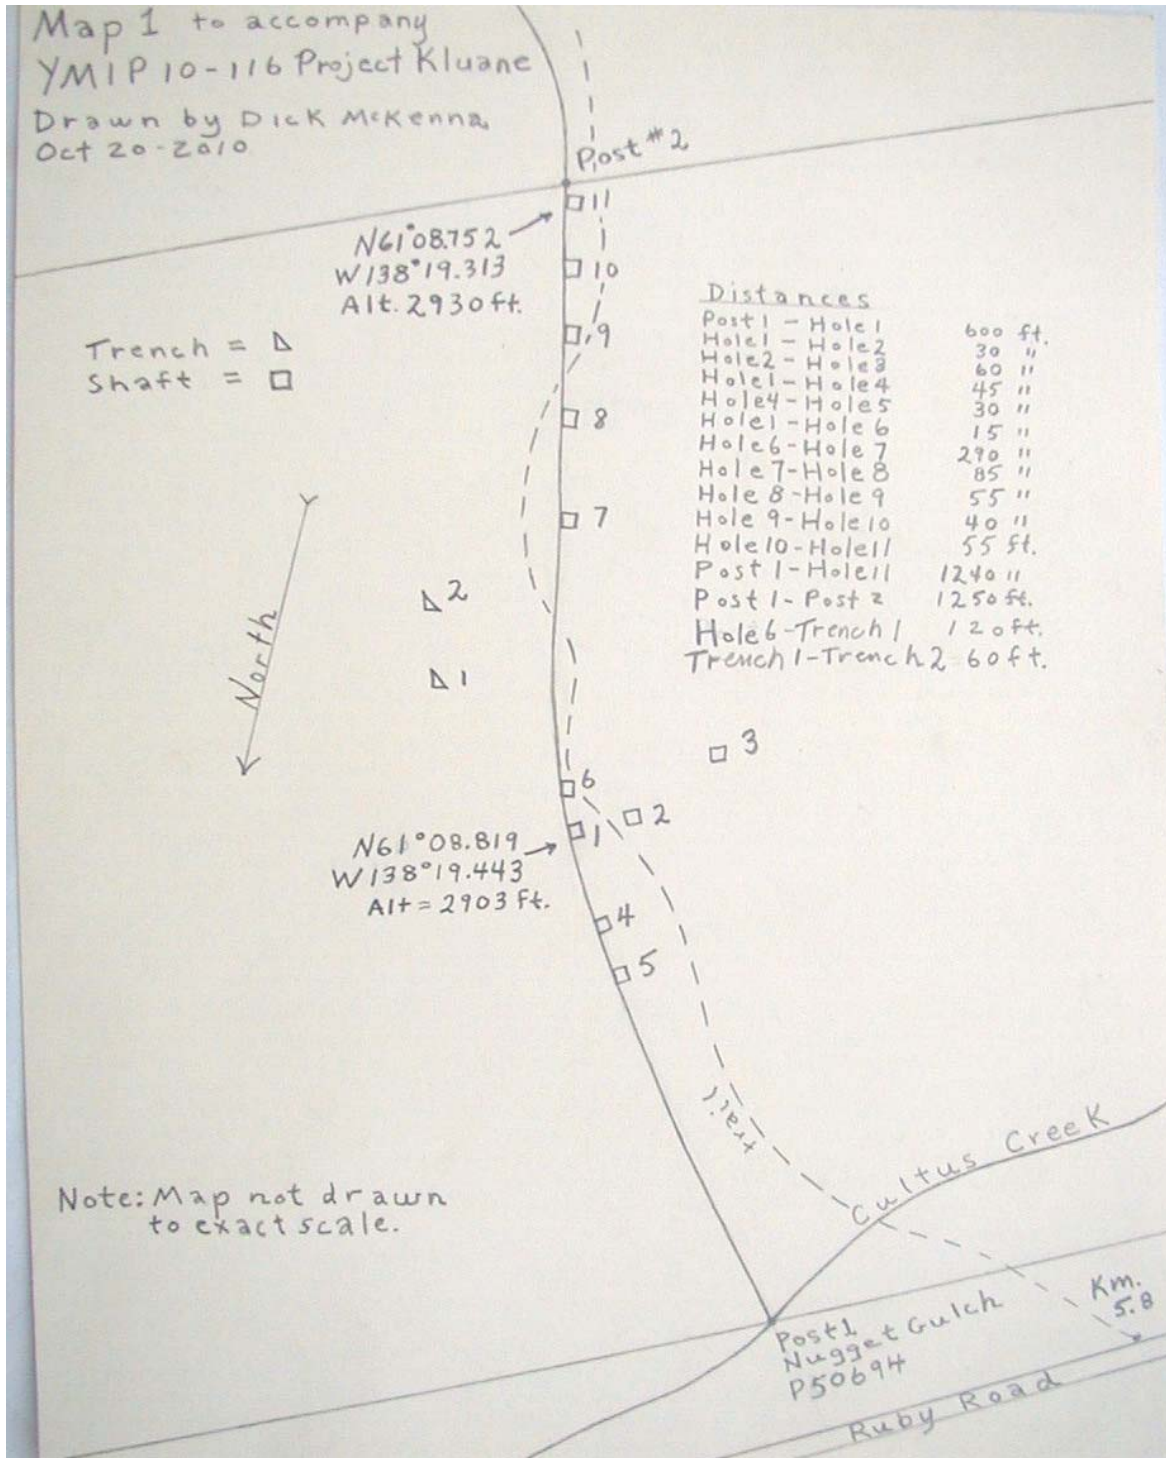 Map 1 to accompany
YMIP 10-116 Project Kluane
Drawn by Dick McKenna
Oct 20-2010
Post #2
11
N61°08.752
W138°19.313
Alt. 2930ft.
10
9
Trench = ◺
Shaft = □
8
7
Distances
Post1 - Hole1 600 ft.
Hole1 - Hole2 30 "
Hole2 - Hole3 60 "
Hole1 - Hole4 45 "
Hole4 - Hole5 30 "
Hole1 - Hole 6 15 "
Hole6 - Hole 7 290 "
Hole 7 - Hole 8 85 "
Hole 8 - Hole 9 55 "
Hole 9 - Hole10 40 "
Hole10 - Hole11 55 ft.
Post 1 - Hole11 1240 "
Post 1 - Post 2 1250 ft.
Hole 6 - Trench 1 120 ft.
Trench 1 - Trench 2 60 ft.
2
1
North
3
6
2
1
N61°08.819
W138°19.443
Alt = 2903 ft.
4
5
trail
Cultus Creek
Note: Map not drawn
to exact scale.
Km.
5.8
Post1
Nugget Gulch
P50694
Ruby Road